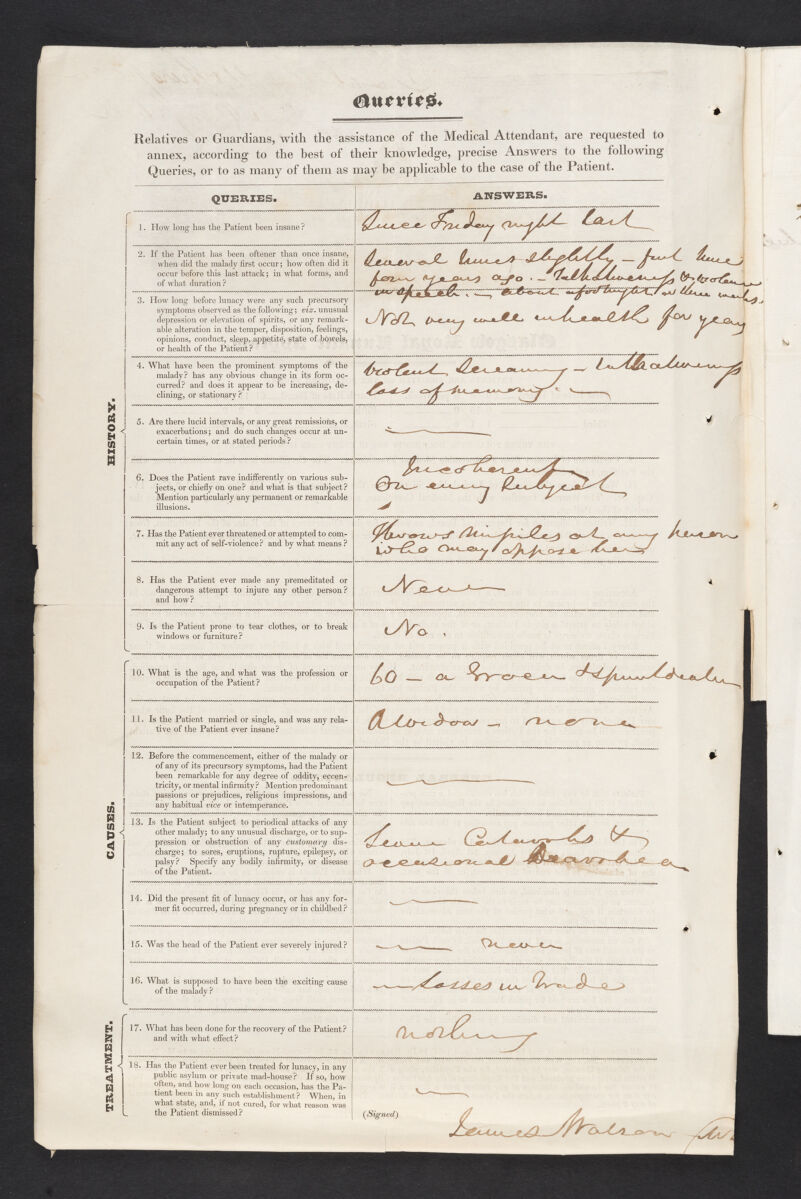 Queries.
Relatives or Guardians, with the assistance of the Medical Attendant, are requested to
annex, according to the best of their knowledge, precise Answers to the following
Queries, or to as many of them as may be applicable to the case of the Patient.
QUERIES.
ANSWERS.
HISTORY.
1. How long has the Patient been insane?
Since Friday night last
2. If the Patient has been oftener than once insane,
when did the malady first occur; how often did it
occur before this last attack; in what forms, and
of what duration?
Several times slightly – first time
four years ago. – Talkativeness & violence
in speech. – about a fortnight or three weeks.
3. How long before lunacy were any such precursory
symptoms observed as the following; viz. unusual
depression or elevation of spirits, or any remark-
able alteration in the temper, disposition, feelings,
opinions, conduct, sleep, appetite, state of bowels,
or health of the Patient?
Not very well in health for years
4. What have been the prominent symptoms of the
malady? has any obvious change in its form oc-
curred? and does it appear to be increasing, de-
clining, or stationary?
Violent Screaming – talkativeness
loss of memory. —
5. Are there lucid intervals, or any great remissions, or
exacerbations; and do such changes occur at un-
certain times, or at stated periods?
—
6. Does the Patient rave indifferently on various sub-
jects, or chiefly on one? and what is that subject?
Mention particularly any permanent or remarkable
illusions.
Incoherent
On every Subject
7. Has the Patient ever threatened or attempted to com-
mit any act of self-violence? and by what means?
Throws missiles at any person
who may oppose her
8. Has the Patient ever made any premeditated or
dangerous attempt to injure any other person?
and how?
Never
9. Is the Patient prone to tear clothes, or to break
windows or furniture?
No.
CAUSES.
10. What is the age, and what was the profession or
occupation of the Patient?
60 – a Grocer & Spirit dealer
11. Is the Patient married or single, and was any rela-
tive of the Patient ever insane?
A Widow – none
12. Before the commencement, either of the malady or
of any of its precursory symptoms, had the Patient
been remarkable for any degree of oddity, eccen-
tricity, or mental infirmity? Mention predominant
passions or prejudices, religious impressions, and
any habitual vice or intemperance.
—
13. Is the Patient subject to periodical attacks of any
other malady; to any unusual discharge, or to sup-
pression or obstruction of any customary dis-
charge; to sores, eruptions, rupture, epilepsy, or
palsy? Specify any bodily infirmity, or disease
of the Patient.
Catarrhs &
occasional Diarrhea
14. Did the present fit of lunacy occur, or has any for-
mer fit occurred, during pregnancy or in childbed?
—
15. Was the head of the Patient ever severely injured?
— never
16. What is supposed to have been the exciting cause
of the malady?
— Losses in trade
TREATMENT.
17. What has been done for the recovery of the Patient?
and with what effect?
nothing
18. Has the Patient ever been treated for lunacy, in any
public asylum or private mad-house? If so, how
often, and how long on each occasion, has the Pa-
tient been in any such establishment? When, in
what state, and, if not cured, for what reason was
the Patient dismissed?
—
(Signed)
James Watson